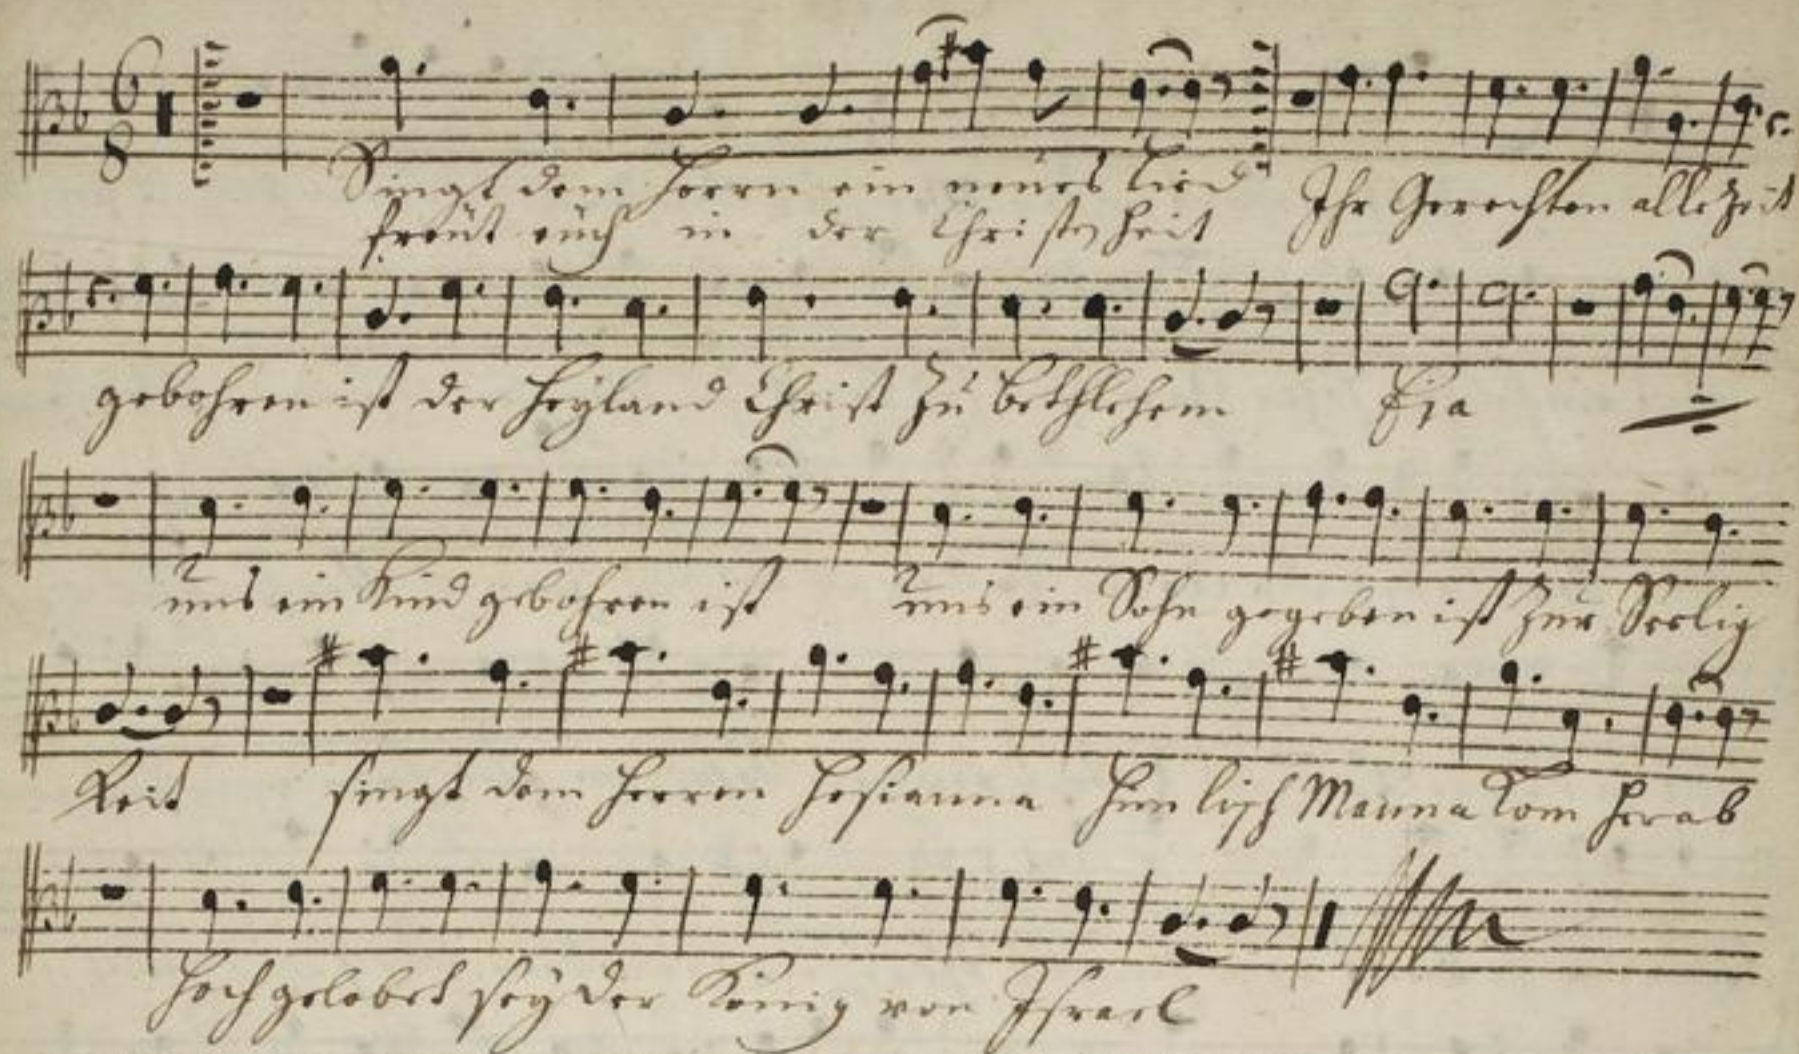 6
8
Singt dem Herrn ein neües Lied Ihr Gerechten allezeit
freüt eüch in der Christenheit
gebohren ist der Heyland Christ Zu Bethlehem Eja
uns ein Kind gebohren ist uns ein Sohn gegeben ist Zur Seelig
keit singt dem Herren Hosianna Himlisch Manna kom herab
Hochgelobet seÿ der König von Israel